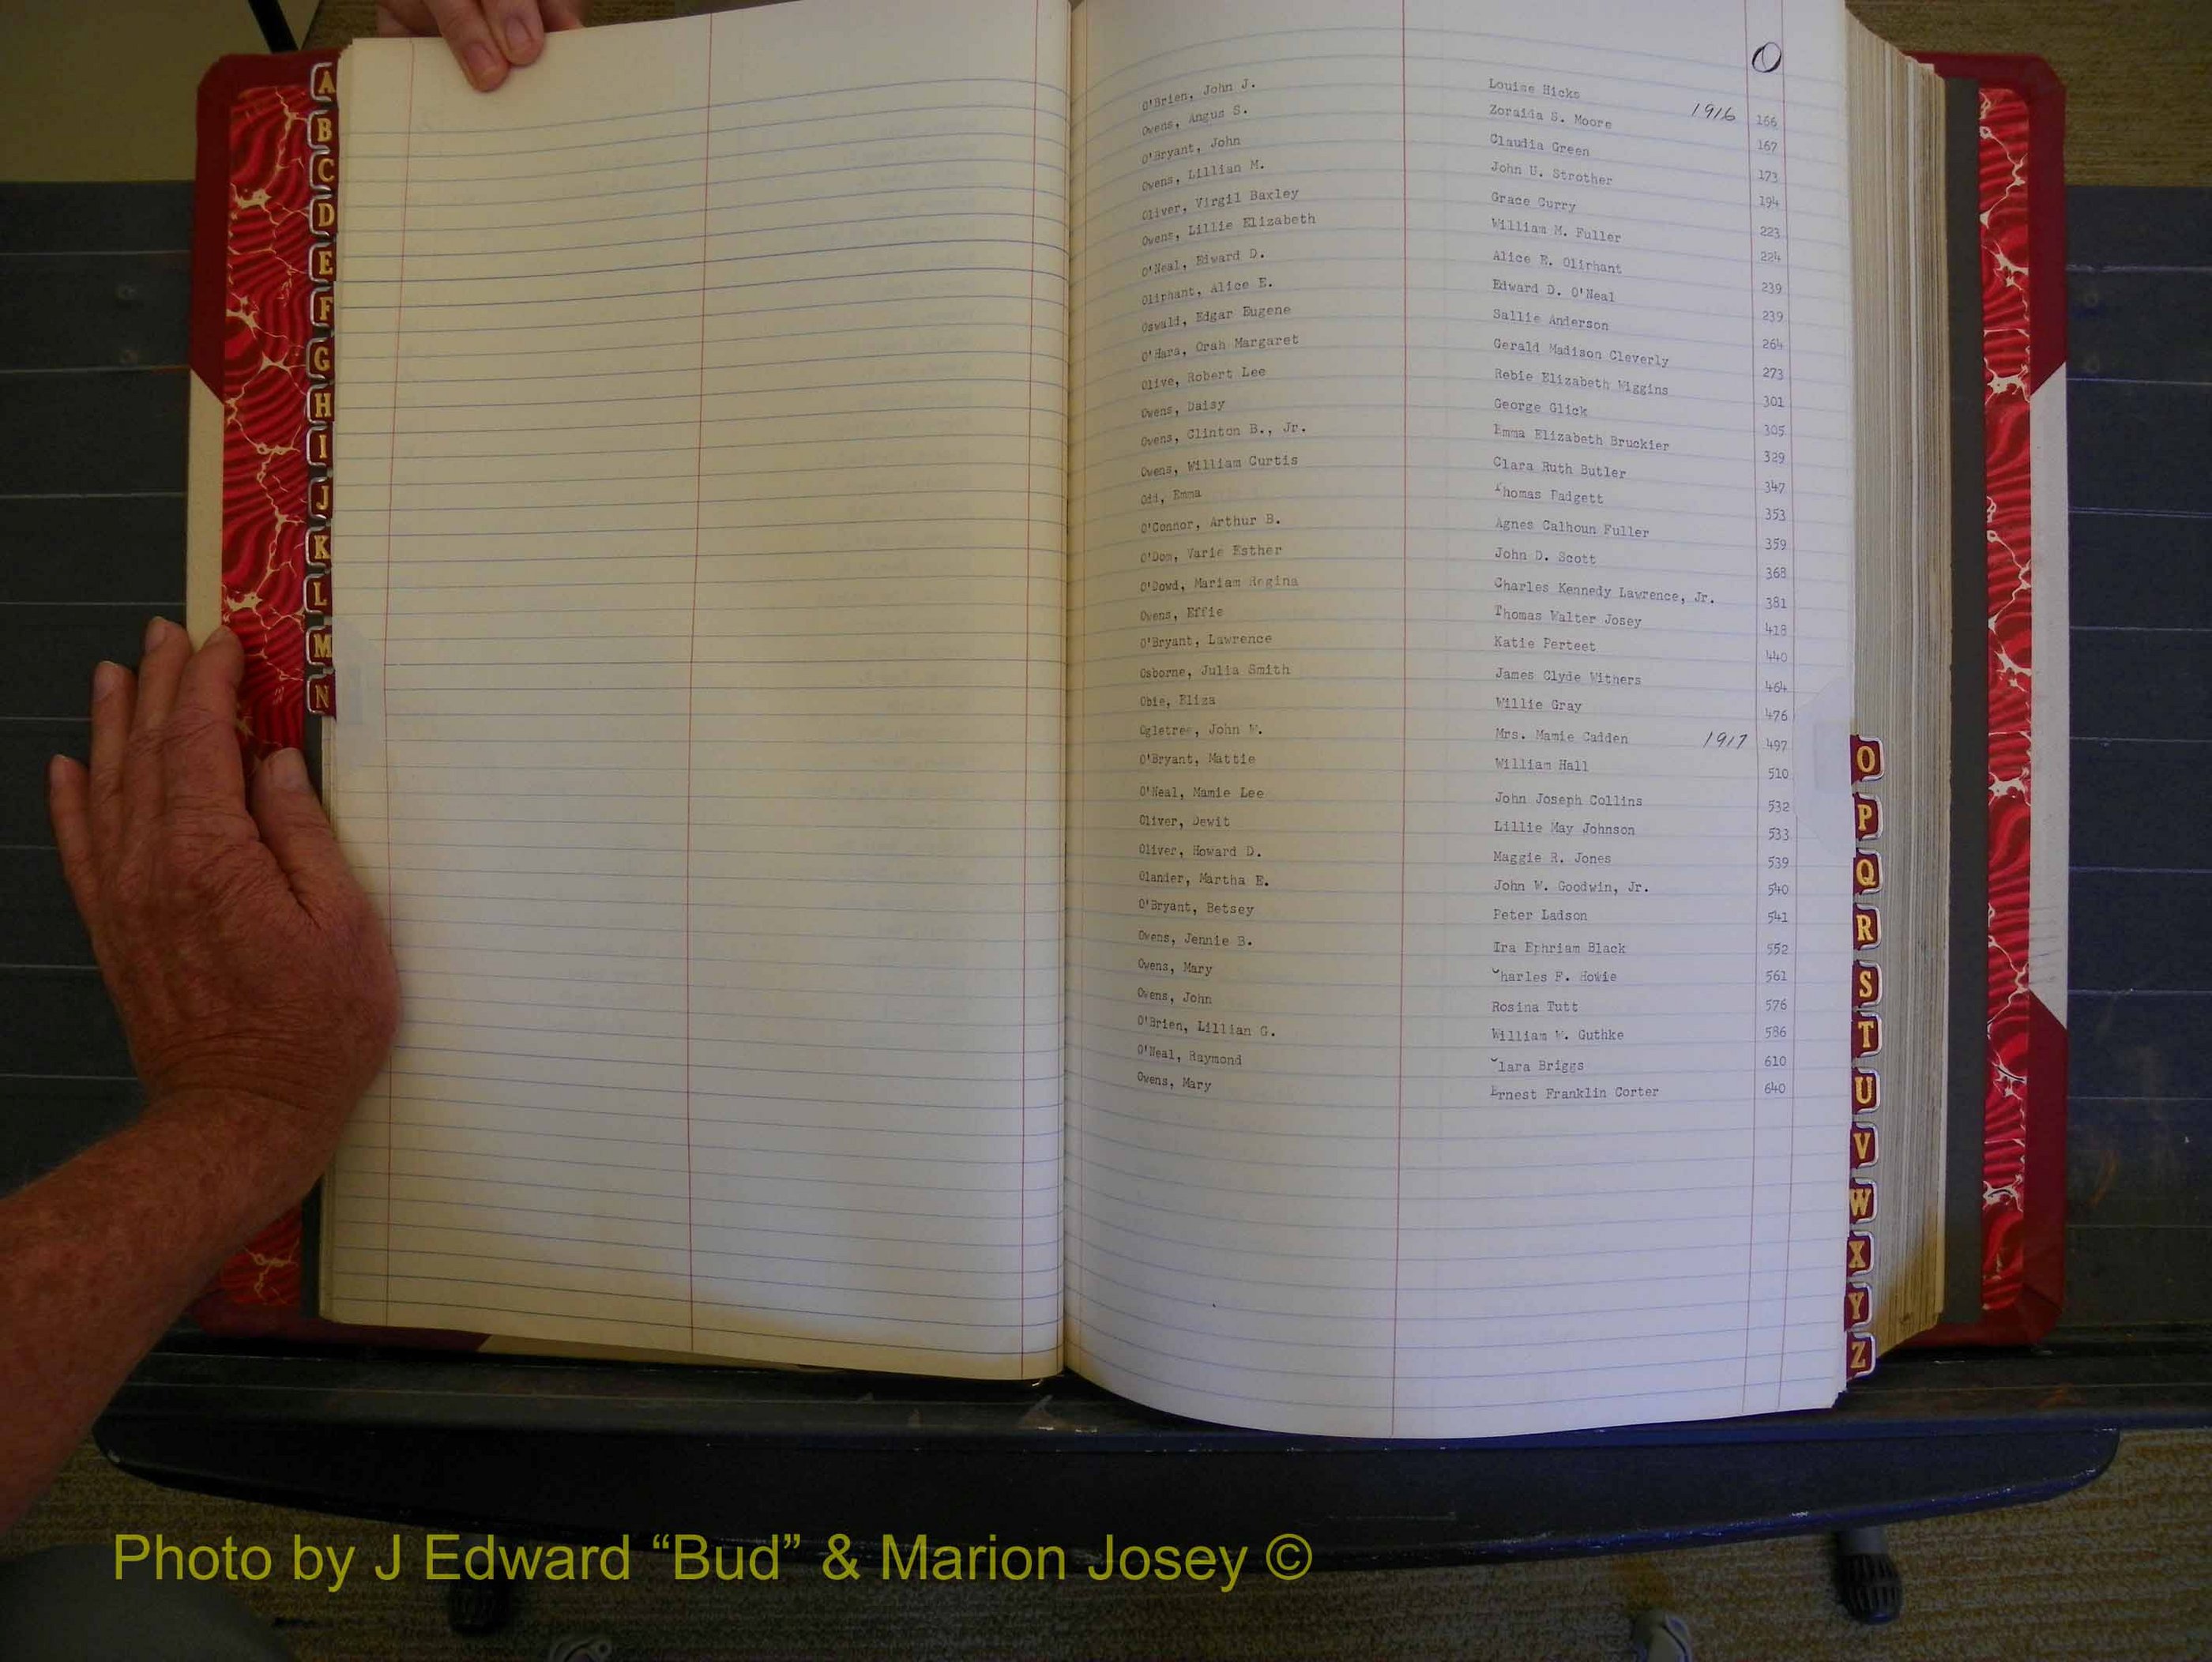 A
B
C
D
E
F
G
H
I
J
K
L
M
N
O
O'Brien, John J. Louise Hicks 1916 166
Owens, Angus S. Zoraida S. Moore 167
O'Bryant, John Claudia Green 173
Owens, Lillian M. John U. Strother 194
Oliver, Virgil Baxley Grace Curry 223
Owens, Lillie Elizabeth William M. Fuller 224
O'Neal, Edward D. Alice E. Oliphant 239
Oliphant, Alice E. Edward D. O'Neal 239
Oswald, Edgar Eugene Sallie Anderson 264
O'Hara, Orah Margaret Gerald Madison Cleverly 273
Olive, Robert Lee Rebie Elizabeth Wiggins 301
Owens, Daisy George Glick 305
Owens, Clinton B., Jr. Emma Elizabeth Bruckier 329
Owens, William Curtis Clara Ruth Butler 347
Odd, Emma Thomas Padgett 353
O'Connor, Arthur B. Agnes Calhoun Fuller 359
O'Dom, Varie Esther John D. Scott 368
O'Dowd, Mariam Regina Charles Kennedy Lawrence, Jr. 381
Owens, Effie Thomas Walter Josey 418
O'Bryant, Lawrence Katie Perteet 440
Osborne, Julia Smith James Clyde Withers 464
Obie, Eliza Willie Gray 476
Ogletree, John W. Mrs. Mamie Cadden 1917 497
O'Bryant, Mattie William Hall 510
O'Neal, Mamie Lee John Joseph Collins 532
Oliver, Dewit Lillie May Johnson 533
Oliver, Howard D. Maggie R. Jones 539
Olander, Martha E. John W. Goodwin, Jr. 540
O'Bryant, Betsey Peter Ladson 541
Owens, Jennie B. Ira Ephriam Black 552
Owens, Mary Charles F. Howie 561
Owens, John Rosina Tutt 576
O'Brien, Lillian G. William W. Guthke 586
O'Neal, Raymond Clara Briggs 610
Owens, Mary Ernest Franklin Corter 640
O
P
Q
R
S
T
U
V
W
X
Y
Z
Photo by J Edward “Bud” & Marion Josey ©